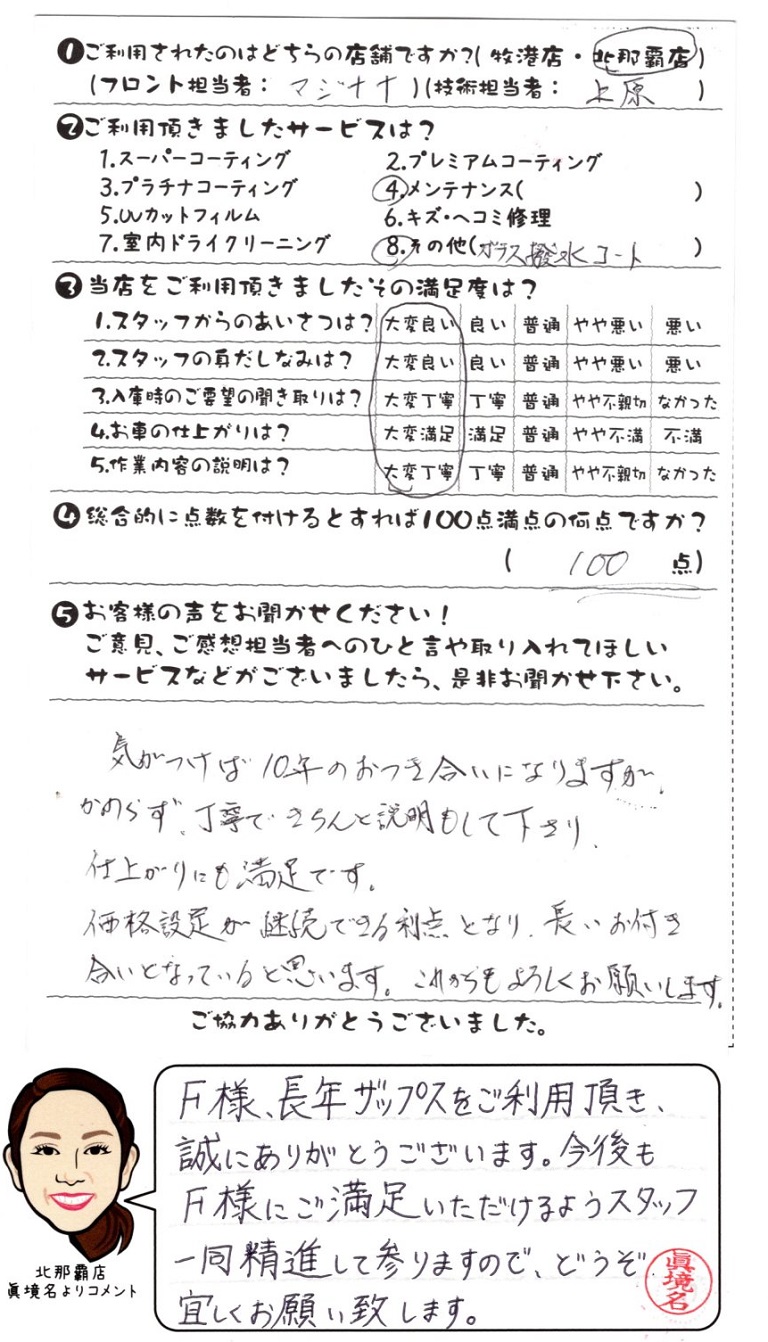 ❶ご利用されたのはどちらの店舗ですか?(牧港店・北那覇店)
(フロント担当者: マジナナ)(技術担当者: 上原 )
❷ご利用頂きましたサービスは?
1.スーパーコーティング 2.プレミアムコーティング
3.プラチナコーティング 4.メンテナンス( )
5.UVカットフィルム 6.キズ・ヘコミ修理
7.室内ドライクリーニング 8.その他(ガラス撥水コート )
❸当店をご利用頂きましたその満足度は?
1.スタッフからのあいさつは? 大変良い 良い 普通 やや悪い 悪い
2.スタッフの身だしなみは? 大変良い 良い 普通 やや悪い 悪い
3.入庫時のご要望の聞き取りは? 大変丁寧 丁寧 普通 やや不親切 なかった
4.お車の仕上がりは? 大変満足 満足 普通 やや不満 不満
5.作業内容の説明は? 大変丁寧 丁寧 普通 やや不親切 なかった
❹総合的に点数を付けるとすれば100点満点の何点ですか?
( 100 点)
❺お客様の声をお聞かせください!
ご意見、ご感想担当者へのひと言や取り入れてほしい
サービスなどがございましたら、是非お聞かせ下さい。
気がつけば10年のおつき合いになりますが、
かのらず、丁寧できちんと説明もして下さり、
仕上がりにも満足です。
価格設定が継続できる利点となり、長いお付き
合いとなっていると思います。これからもよろしくお願いします。
ご協力ありがとうございました。
F様、長年ザップスをご利用頂き、
誠にありがとうございます。今後も
F様にご満足いただけるようスタッフ
一同精進して参りますので、どうぞ
宜しくお願い致します。
眞境名
北那覇店
眞境名よりコメント